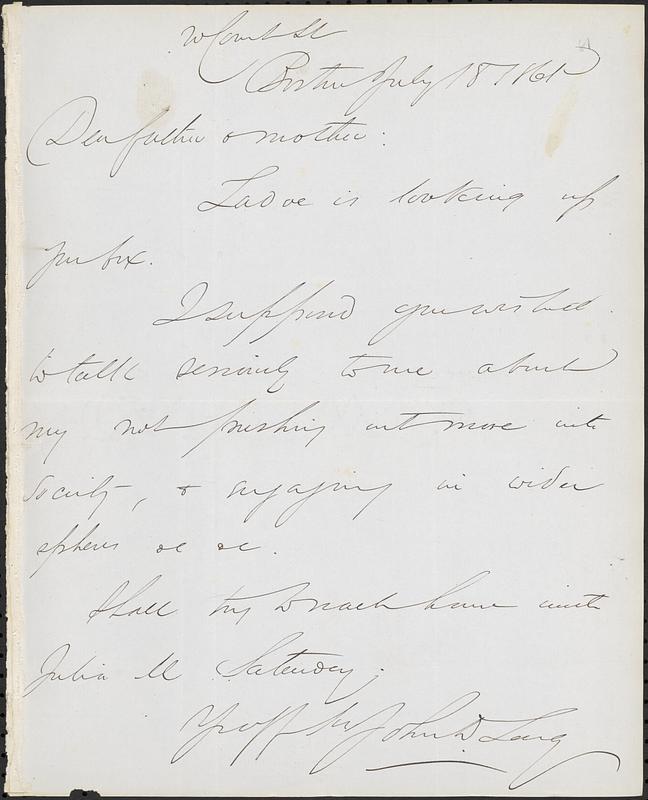 Court St
Boston July 18 1861
Dear father & mother:
Ladoe is looking up
your box.
I suppose you wished
to talk seriously to me about
my not pushing out more into
society, & engaging in wider
spheres &c &c.
Shall try to reach home with
Julia M Saturday.
Yr aff John D Long